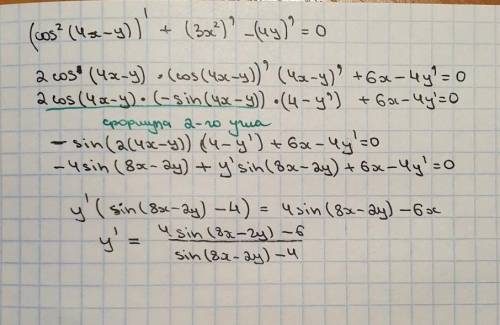 (cos²(4x-y))' + (3x²)' -(4y)' = 0
2cos¹(4x-y) · (cos(4x-y))' (4x-y)' + 6x - 4y' = 0
2cos(4x-y) · (-sin(4x-y)) · (4-y') + 6x - 4y' = 0
формула 2-го угла
-sin(2(4x-y)) (4-y') + 6x - 4y' = 0
-4sin(8x-2y) + y'sin(8x-2y) + 6x - 4y' = 0
y'(sin(8x-2y) - 4) = 4sin(8x-2y) - 6x
y' = 4sin(8x-2y) - 6 / sin(8x-2y) - 4